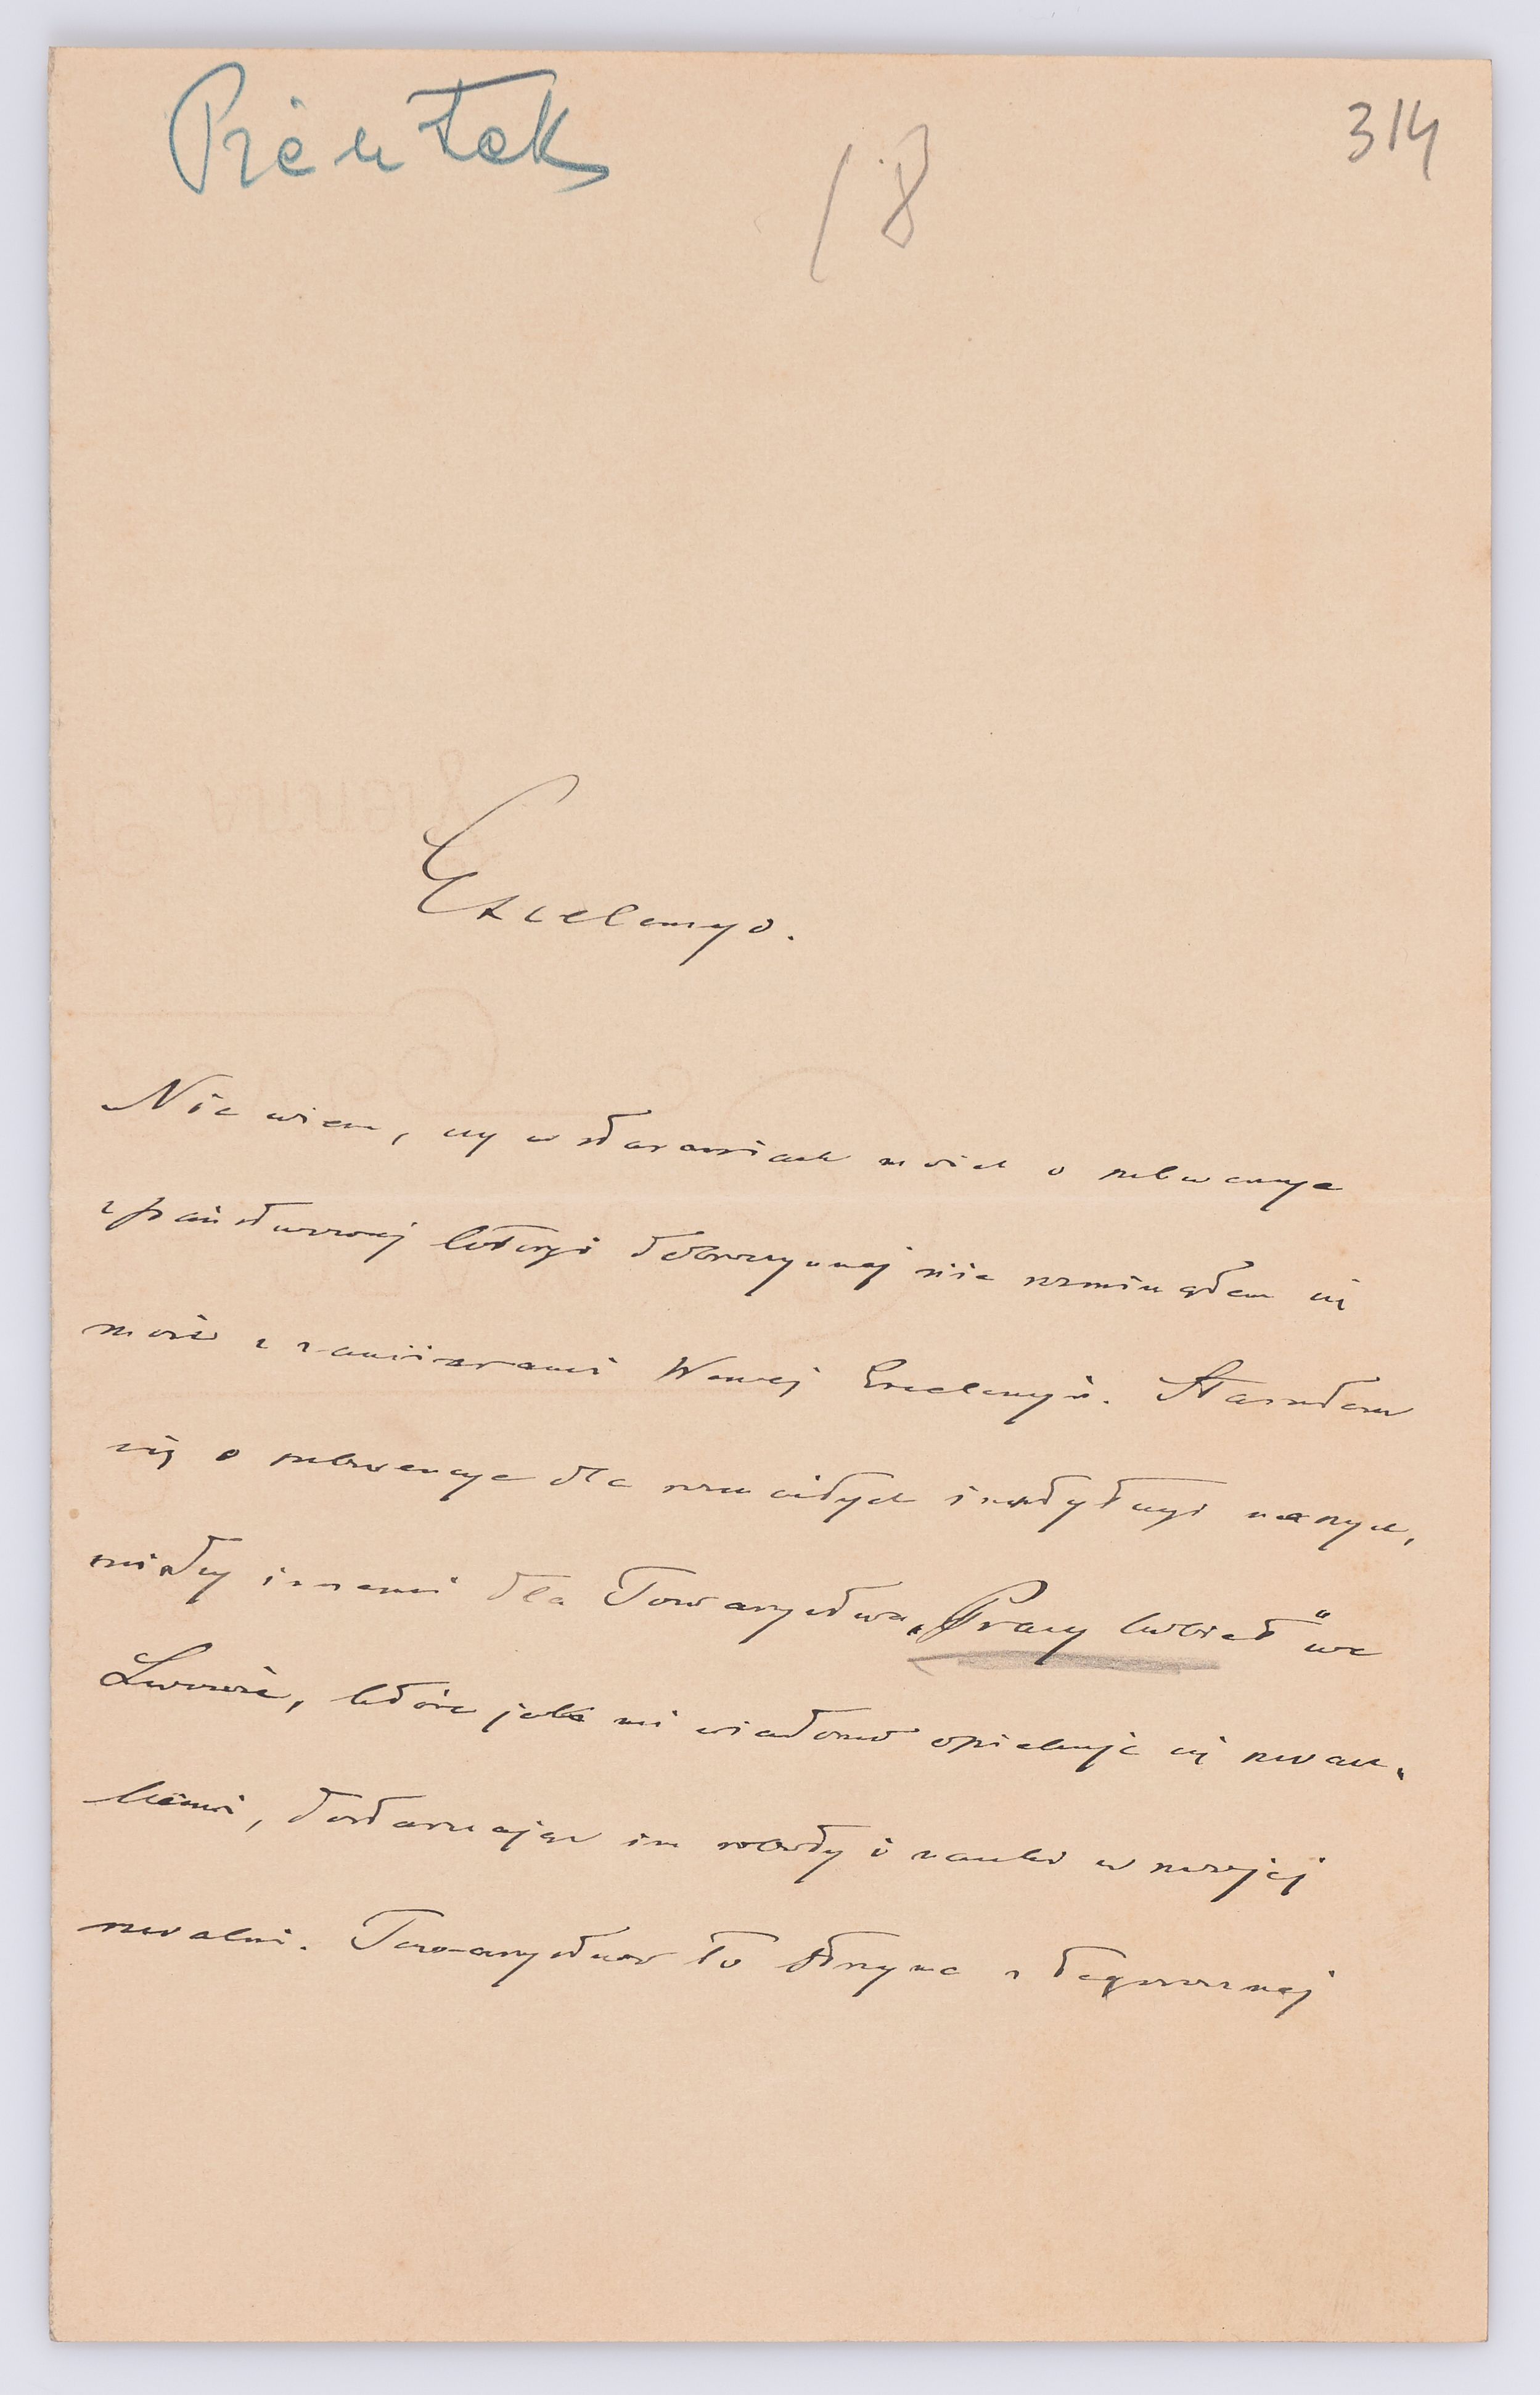 Piéntek
18
314
Excelencyo.
Nie wiem, czy w staraniach moich o subwencye
z państwowej loteryi dobroczynnej nie rozminąłem się
może z zamiarami Waszej Excelencyi. Starałem
się o subwencye dla rozmaitych instytucyi naszych,
między innemi dla Towarzystwa „Pracy kobiet" we
Lwowie, które jak mi wiadomo opiekuje się szwacz-
kami, dostarczając im roboty i nauki w swojej
szwalni. Towarzystwo to otrzyma z tegorocznej